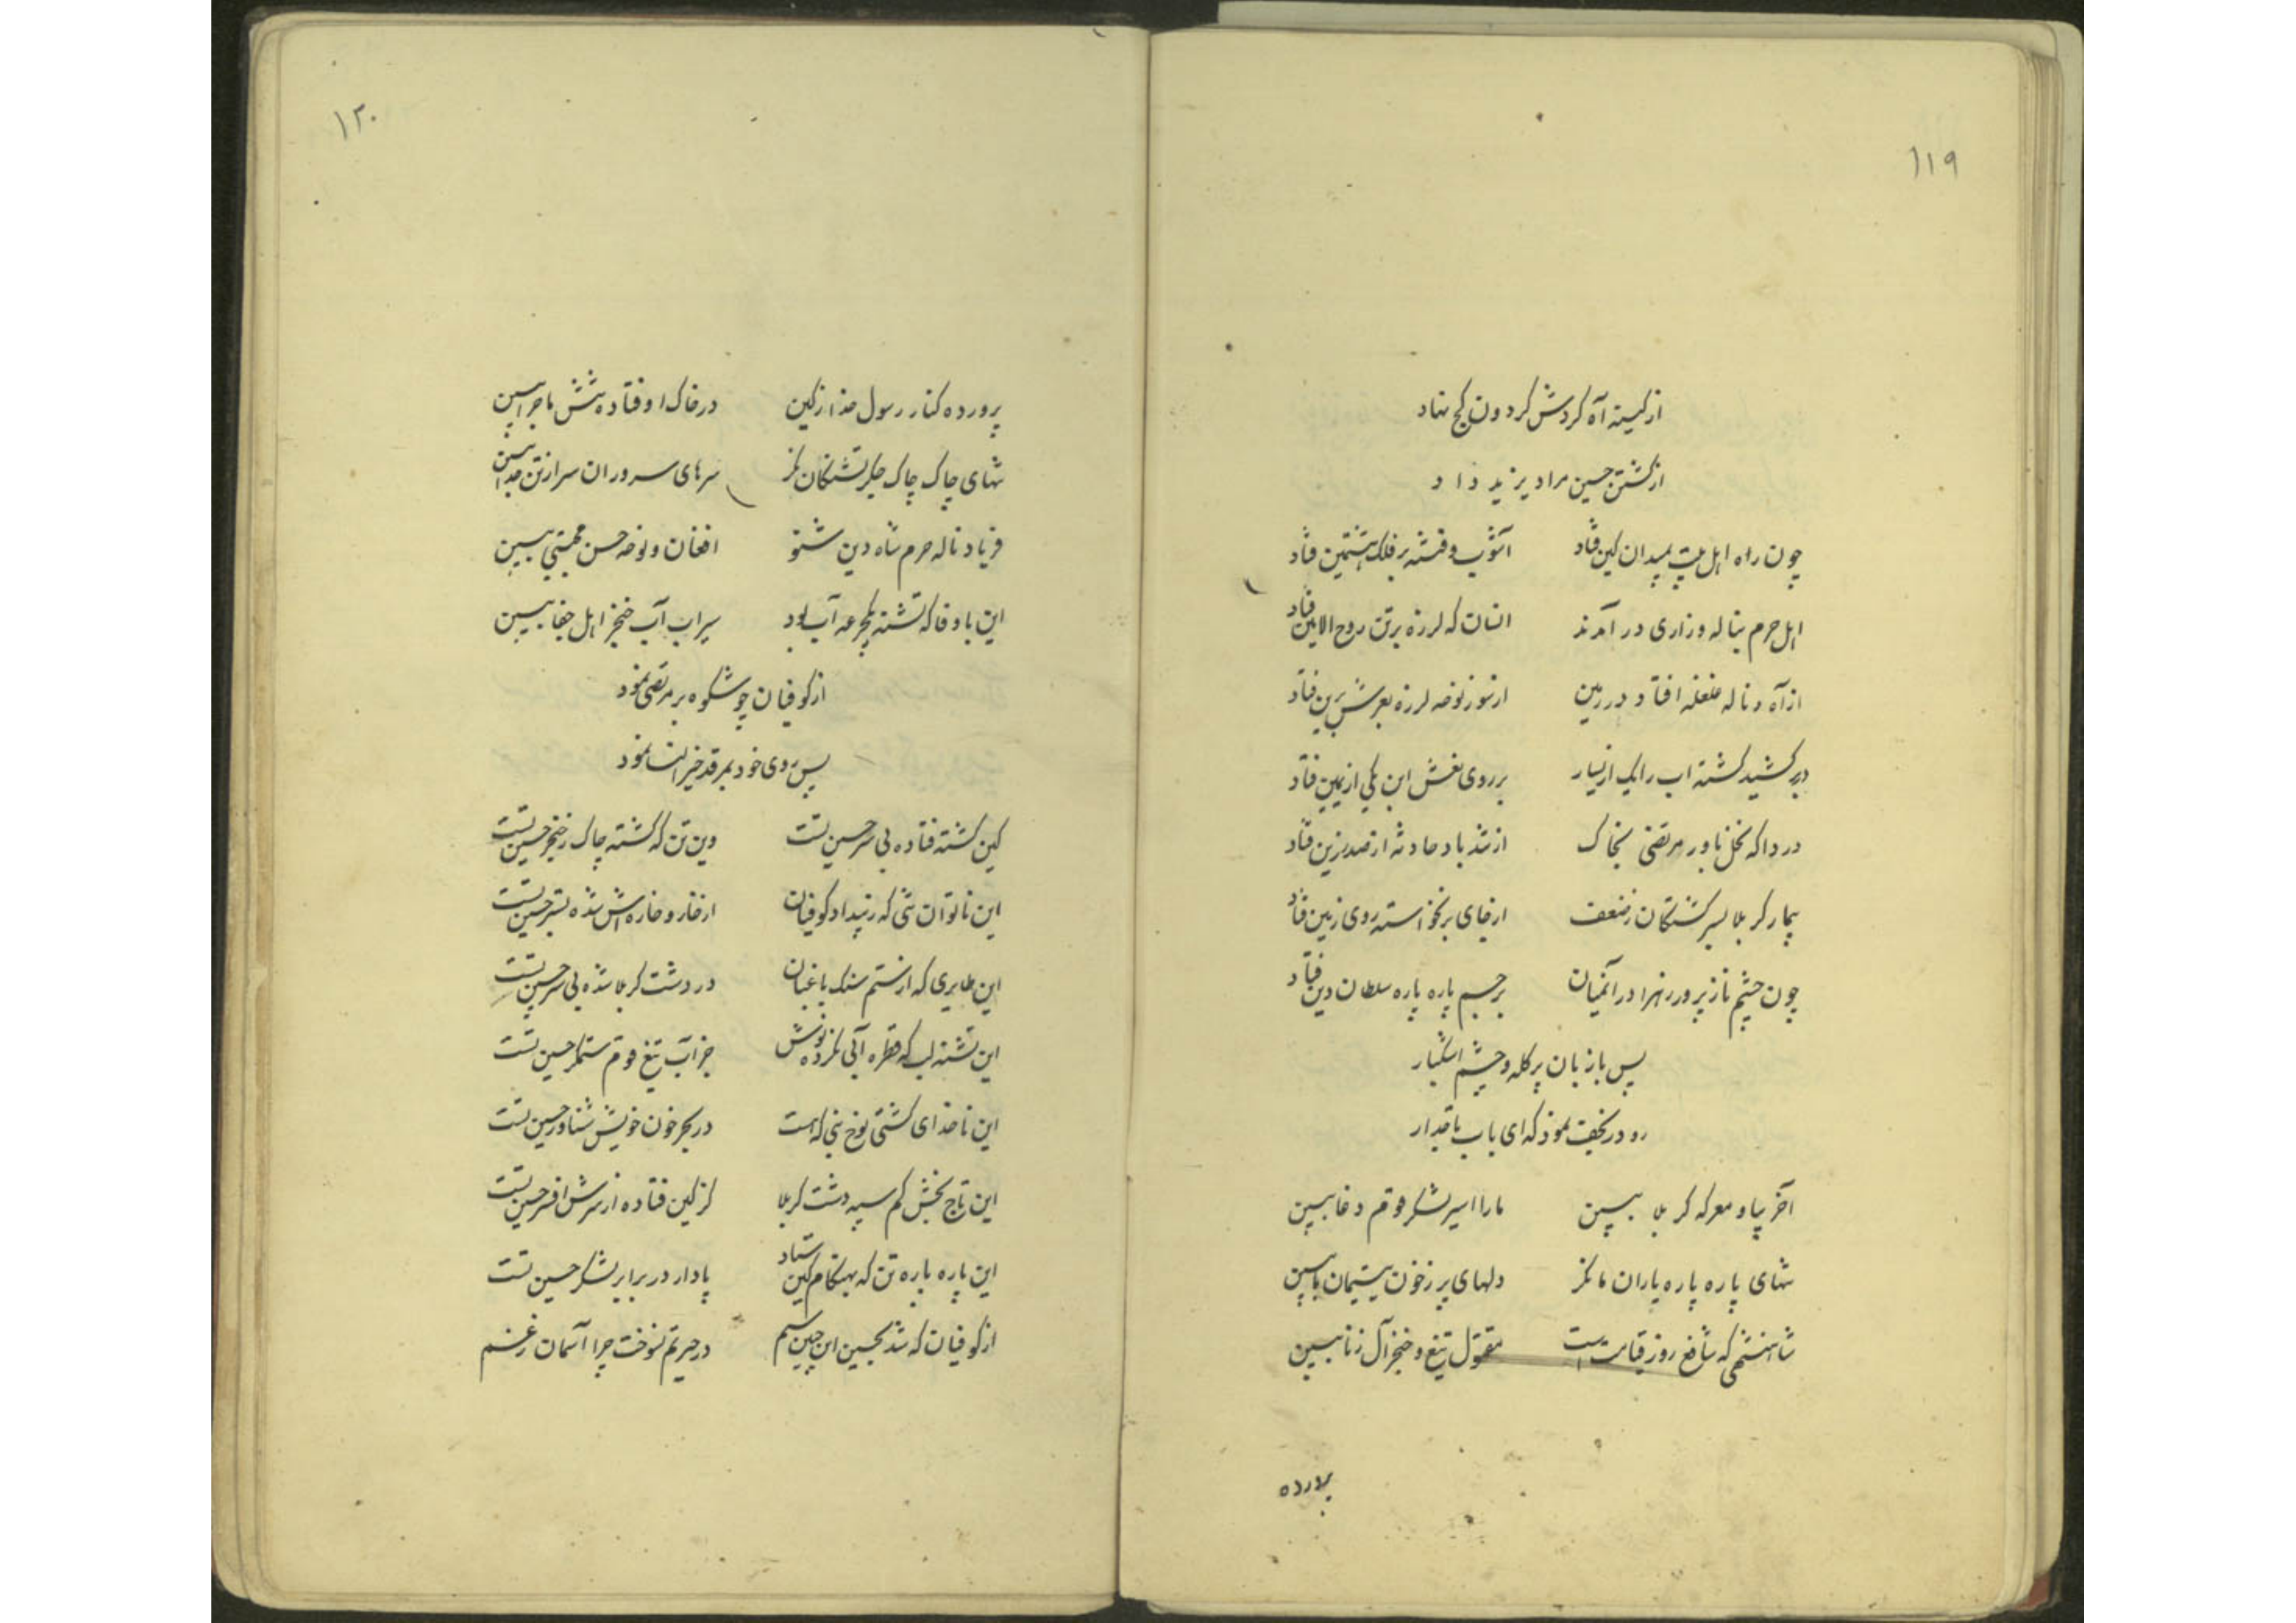 ۱۱۹
از کینه آه گردش گردون کج نهاد
از کشتن حسین مراد یزید داد
چون راه اهل بیت بمیدان کین فتاد آشوب و فتنه بر فلک هشتمین فتاد
اهل حرم بناله و زاری در آمدند انسان که لرزه بر تن روح الامین فتاد
از آه و ناله غلغله افتاد در زمین از شور نوحه لرزه بعرش برین فتاد
در بر کشید کشته اب را یک از یسار بر روی نعش ابن یکی از یمین فتاد
دردا که نخل ناور مرتضی بخاک از تند باد حادثه از صدر زین فتاد
بیمار کربلا بسر کشتگان ز ضعف از جای بر نخواسته روی زمین فتاد
چون چشم ناز پرور زهرا در آنمیان بر جسم پاره پاره سلطان دین فتاد
پس با زبان پر گله و چشم اشکبار
رو در نجف نمود که ای باب تاقدار
آخر بیا و معرکه کربلا ببین ما را اسیر لشکر قوم دغا ببین
تنهای پاره پاره یاران ما نگر دلهای پر ز خون یتیمان ما ببین
شاهنشهی که شافع روز قیامت است مقتول تیغ و خنجر آل زنا ببین
پرورده
۱۲۰
پرورده کنار رسول خدا ز کین در خاک اوفتاده تنش ماجرا ببین
تنهای چاک چاک جگر تشنگان نگر سرهای سروران سر از تن جدا ببین
فریاد ناله حرم شاه دین شنو افغان و نوحه حسن مجتبی ببین
این باوفا که تشنه یکجرعه آب بود سیراب آب خنجر اهل جفا ببین
از کوفیان چو شکوه بر مرتضی نمود
پس روی خود بمرقد خیر النسا نمود
کین کشته فتاده بی سر حسین تست وین تن که گشته چاک ز خنجر حسین تست
این ناتوان تنی که ز بیداد کوفیان از خار و خاره اش شده بستر حسین تست
این طایری که از ستم سنک باغبان در دشت کربلا شده بی سر حسین تست
این تشنه لب که قطره آبی نکرده نوش جز آب تیغ قوم ستمگر حسین تست
این ناخدای کشتی نوح نبی که هست در بحر خون خویش شناور حسین تست
این تاج بخش کم سپه دشت کربلا کز کین فتاده از سرش افسر حسین تست
این پاره پاره تن که بهنگام کین ستاد پادار در برابر لشکر حسین تست
از کوفیان که شد بحسین این چنین ستم در حیرتم نسوخت چرا آسمان ز غم